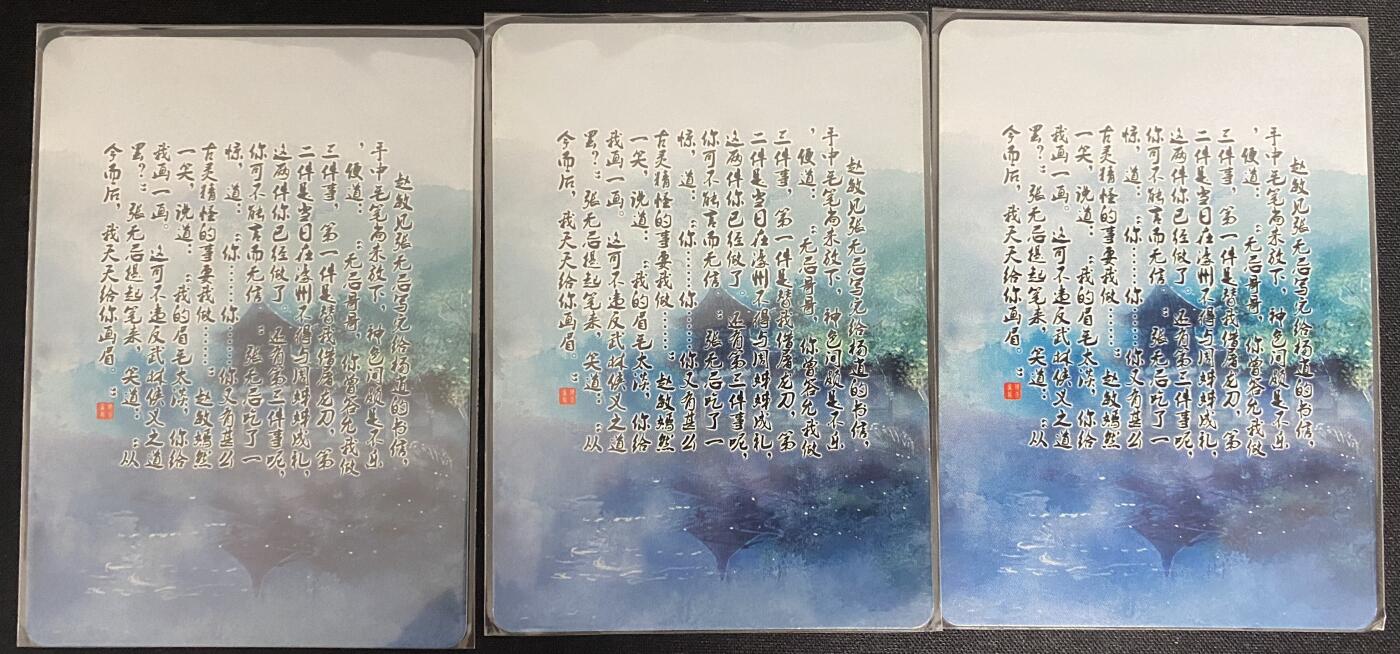 赵敏见张无忌写完给杨逍的书信，
手中毛笔尚未放下，神色间颇是不乐
，便道：“无忌哥哥，你曾答允我做
三件事，第一件是替我借屠龙刀，第
二件是当日在濠州不得与周姊姊成礼，
这两件你已经做了。还有第三件事呢，
你可不能言而无信。”张无忌吃了一
惊，道：“你……你……你又有甚么
古灵精怪的事要我做……”赵敏嫣然
一笑，说道：“我的眉毛太淡，你给
我画一画。这可不违反武林侠义之道
罢？”张无忌提起笔来，笑道：“从
今而后，我天天给你画眉。”
赵敏见张无忌写完给杨逍的书信，
手中毛笔尚未放下，神色间颇是不乐
，便道：“无忌哥哥，你曾答允我做
三件事，第一件是替我借屠龙刀，第
二件是当日在濠州不得与周姊姊成礼，
这两件你已经做了。还有第三件事呢，
你可不能言而无信。”张无忌吃了一
惊，道：“你……你……你又有甚么
古灵精怪的事要我做……”赵敏嫣然
一笑，说道：“我的眉毛太淡，你给
我画一画。这可不违反武林侠义之道
罢？”张无忌提起笔来，笑道：“从
今而后，我天天给你画眉。”
赵敏见张无忌写完给杨逍的书信，
手中毛笔尚未放下，神色间颇是不乐
，便道：“无忌哥哥，你曾答允我做
三件事，第一件是替我借屠龙刀，第
二件是当日在濠州不得与周姊姊成礼，
这两件你已经做了。还有第三件事呢，
你可不能言而无信。”张无忌吃了一
惊，道：“你……你……你又有甚么
古灵精怪的事要我做……”赵敏嫣然
一笑，说道：“我的眉毛太淡，你给
我画一画。这可不违反武林侠义之道
罢？”张无忌提起笔来，笑道：“从
今而后，我天天给你画眉。”